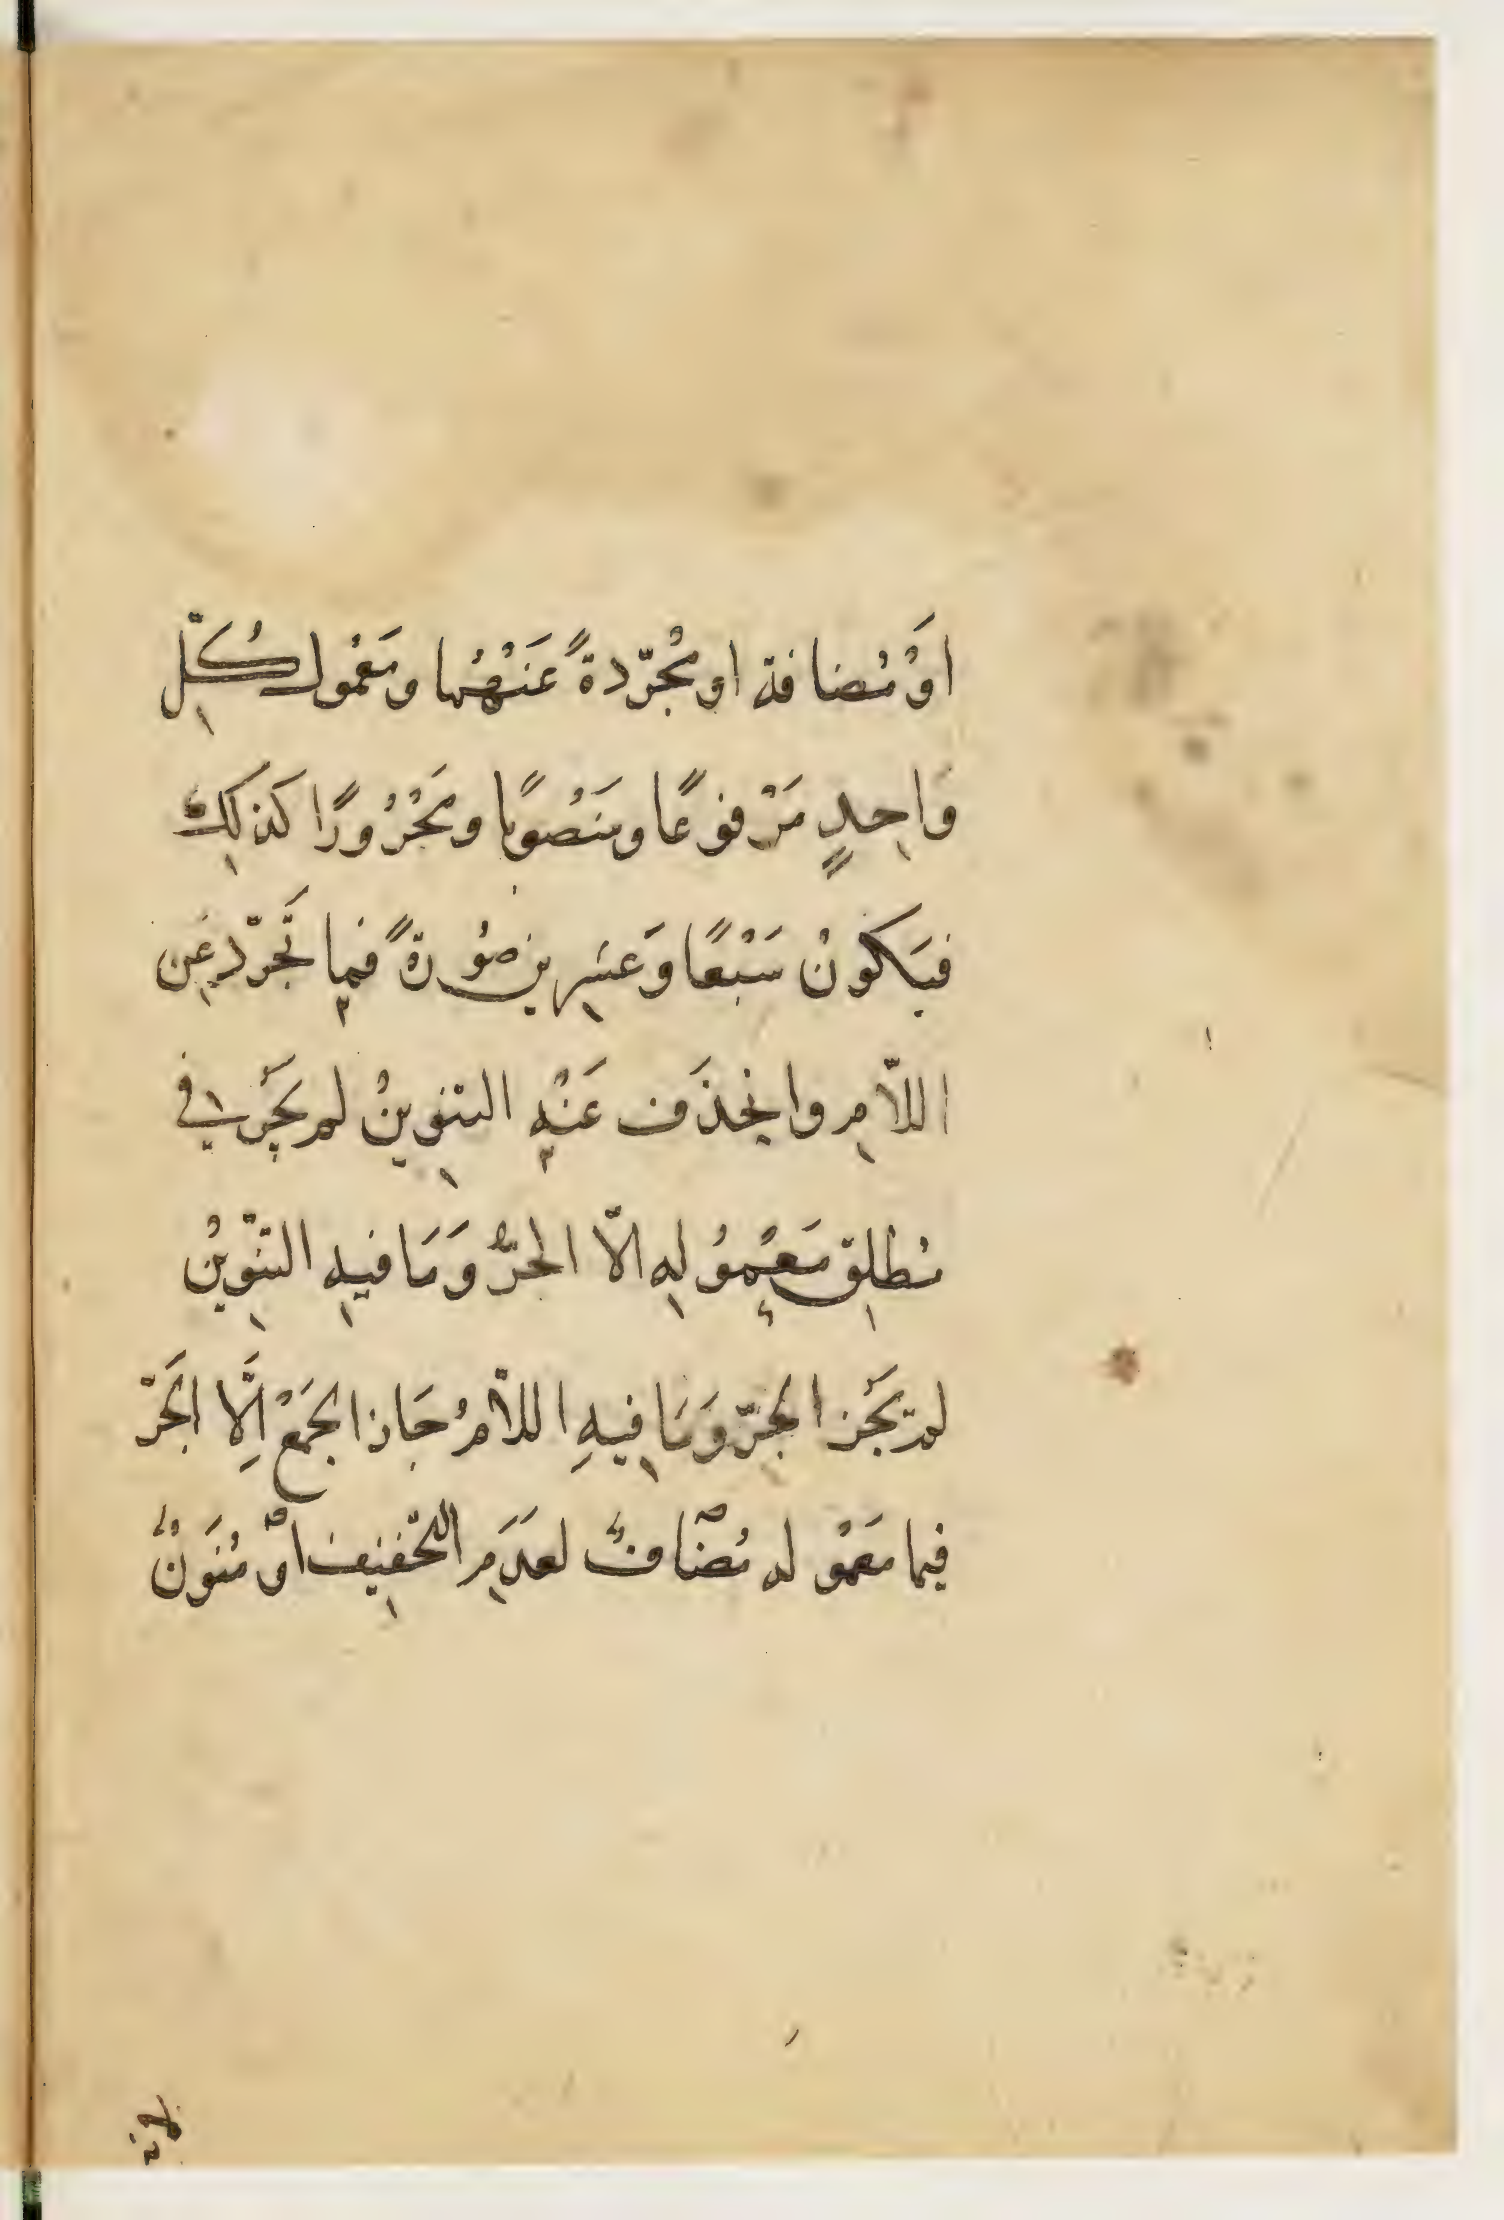 اَوْ مُضافة او مُجرّدةً عَنْهُما ومَعْمُول كُلِّ
وَاحِدٍ مَرْفوعًا ومنَصُوبًا ومَجْرُورًا كَذلِكَ
فيَكونُ سَبْعًا وَعشرِين صُورةً فيما تَجرّد عَن
اللاّمِ وانحذَف عَنْهِ التنوِينُ لم يَجُز في
مُطلقِ مَعْمُولِهِ الاّ الجرُّ وَمَا فيهِ التنّوِينُ
لم يَجُز الجرّ وَمَا فِيهِ اللاّمُ جَازَ الجمَعْ اِلَّا الجَرّ
فيما مَعْمُوله مُضَافٌ لعَدَمِ التّخفِيف اوْ مُنَوَنٌ
لانه